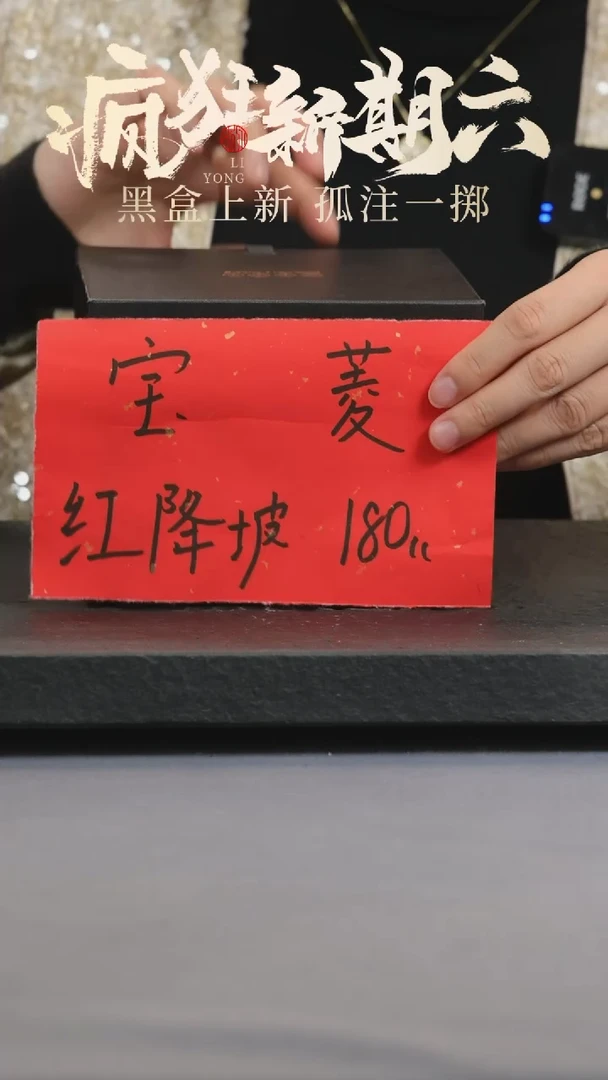 疯狂新期六
LI
YONG
黑盒上新 孤注一掷
宝 菱
红降坡 180cc